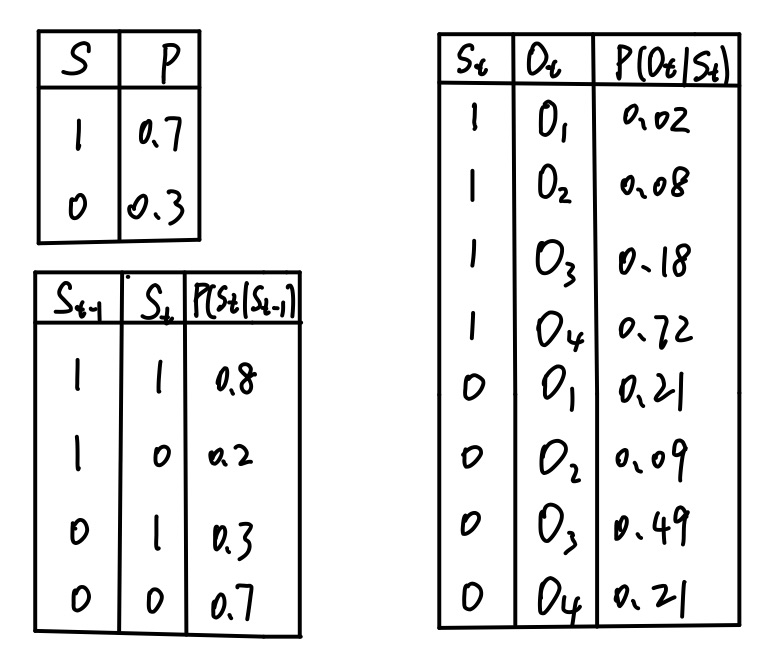 S P
1 0.7
0 0.3
Sₜ₋₁ Sₜ P(Sₜ|Sₜ₋₁)
1 1 0.8
1 0 0.2
0 1 0.3
0 0 0.7
Sₜ Oₜ P(Oₜ|Sₜ)
1 O₁ 0.02
1 O₂ 0.08
1 O₃ 0.18
1 O₄ 0.72
0 O₁ 0.21
0 O₂ 0.09
0 O₃ 0.49
0 O₄ 0.21